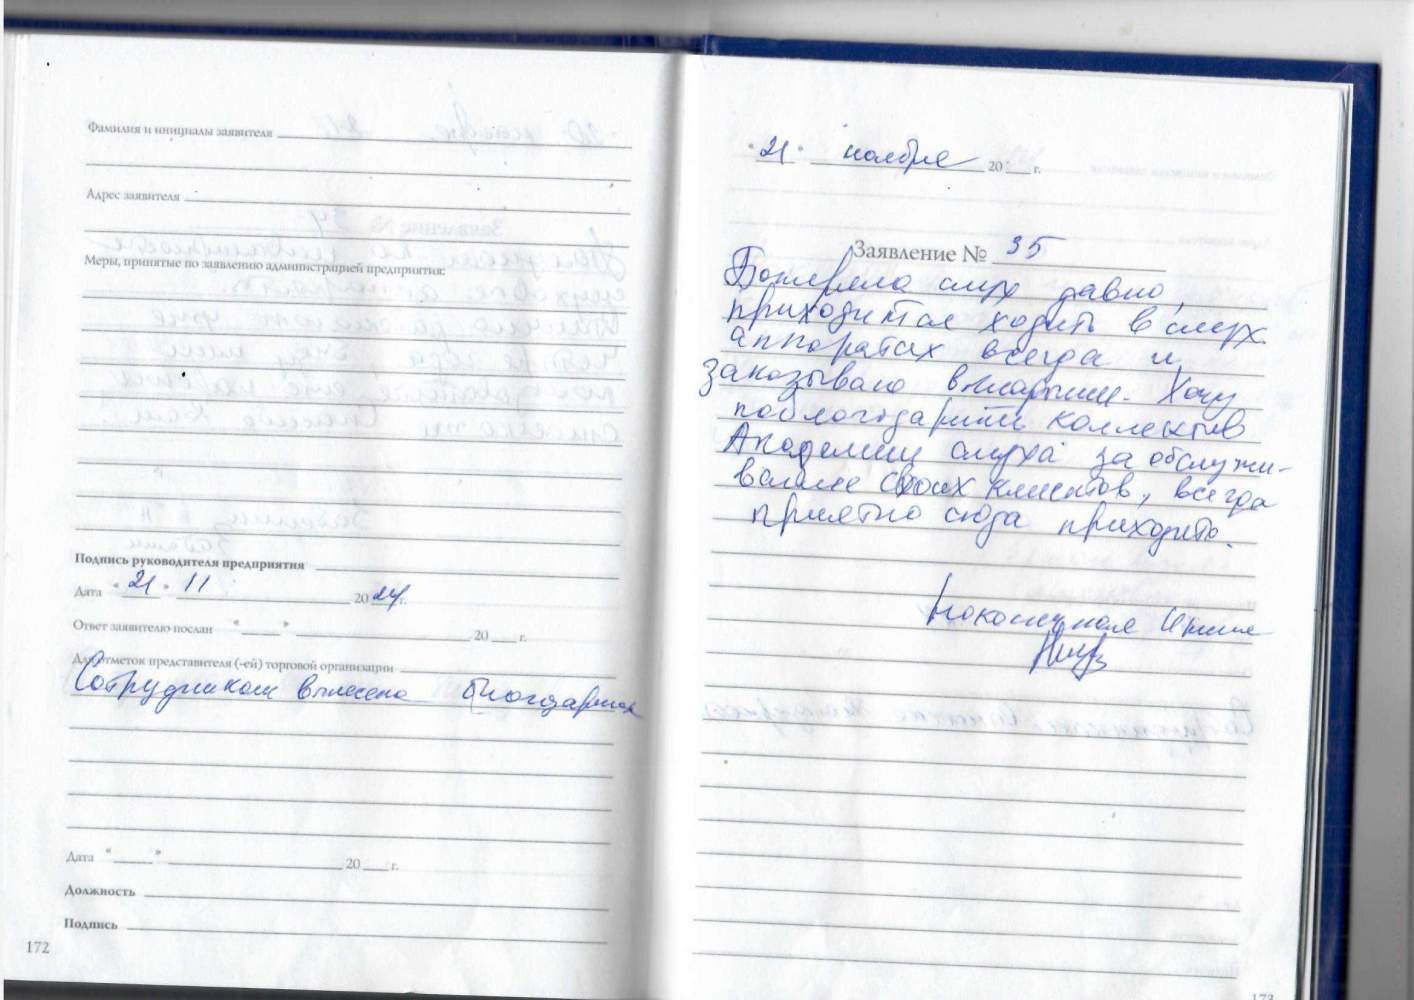 Фамилия и инициалы заявителя
Адрес заявителя
Меры, принятые по заявлению администрацией предприятия:
Подпись руководителя предприятия
Дата "21" 11 2024 г.
Ответ заявителю послан " " 20 г.
Для отметок представителя (-ей) торговой организации
Сотрудникам вынесена
Дата " " 20 г.
Должность
Подпись
172
"21" ноября 20 г.
Заявление № 35
Потеряла слух давно,
приходится ходить в слух.
аппаратах всегда и
заказываю вкладыши. Хочу
поблагодарить коллектив
Академии слуха за обслужи-
вание своих клиентов, всегда
приятно сюда приходить.
173